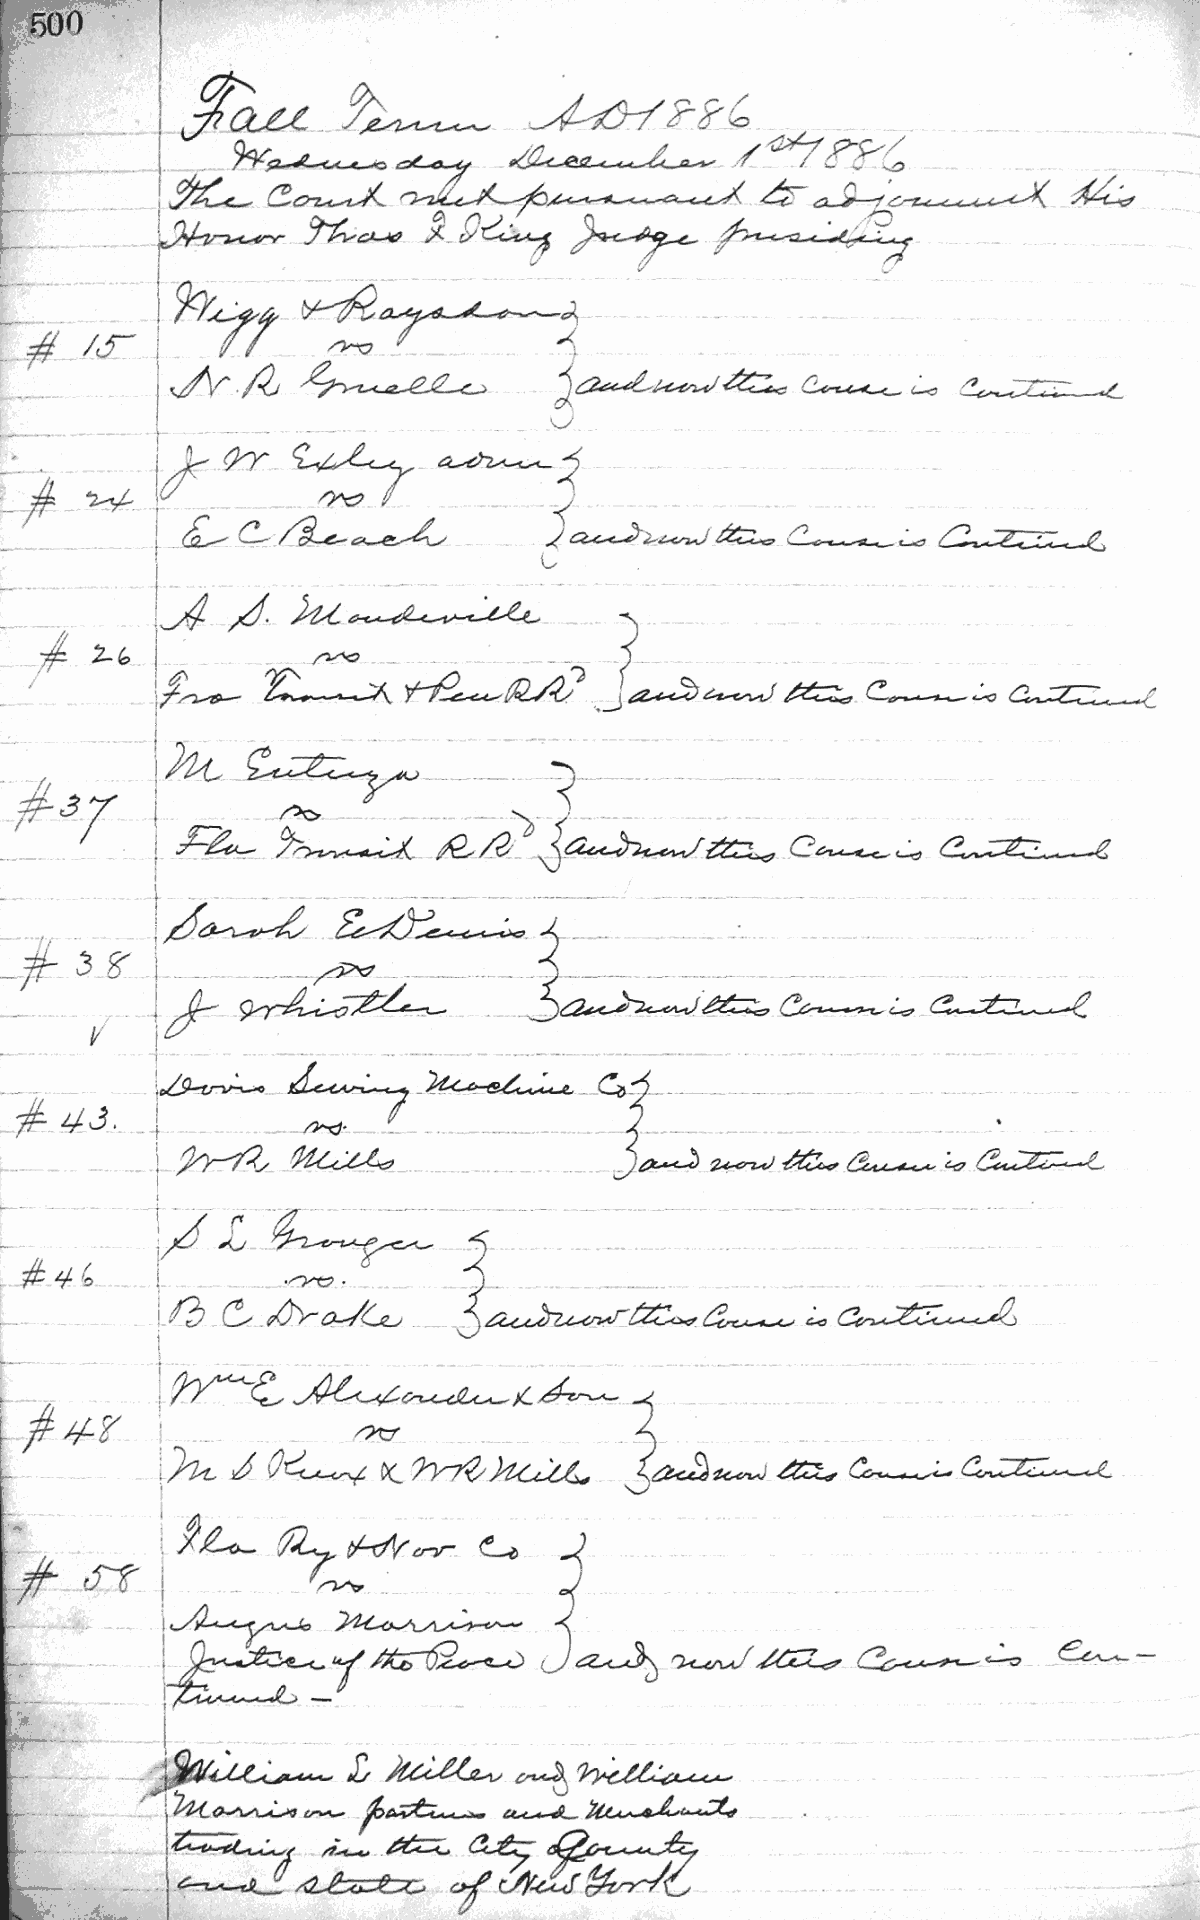 500
Fall Term AD 1886
Wednesday December 1st 1886
The Court met pursuant to adjournment His
Honor Thos F King Judge presiding
Wigg & Raysdon
# 15
vs
N. R Gruelle and now this Cause is Continued
J W Exley admr
# 24
vs
E C Beach and now this Cause is Continued
A S. Mandeville
# 26
vs
Fra Transit & Pen RR and now this Cause is Continued
M
#37
vs
Fla Transit R R and now this Cause is Continued
Sarah E Dennis
# 38
vs
J Whistler and now this Cause is Continued
Davis Sewing Machine Co
# 43.
vs.
W R Mills and now this Cause is Continued
S L Granger
#46
vs.
B C Drake and now this Cause is Continued
Wm E Alexander & Son
#48
vs
M S Knox & W R Mills and now this Cause is Continued
Fla Ry & Nav Co
# 58
vs
Angus Morrison
Justice of the Peace and now this Cause is Con-
tinued -
William L Miller and William
Morrison partners and Merchants
trading in the City County
and state of New York